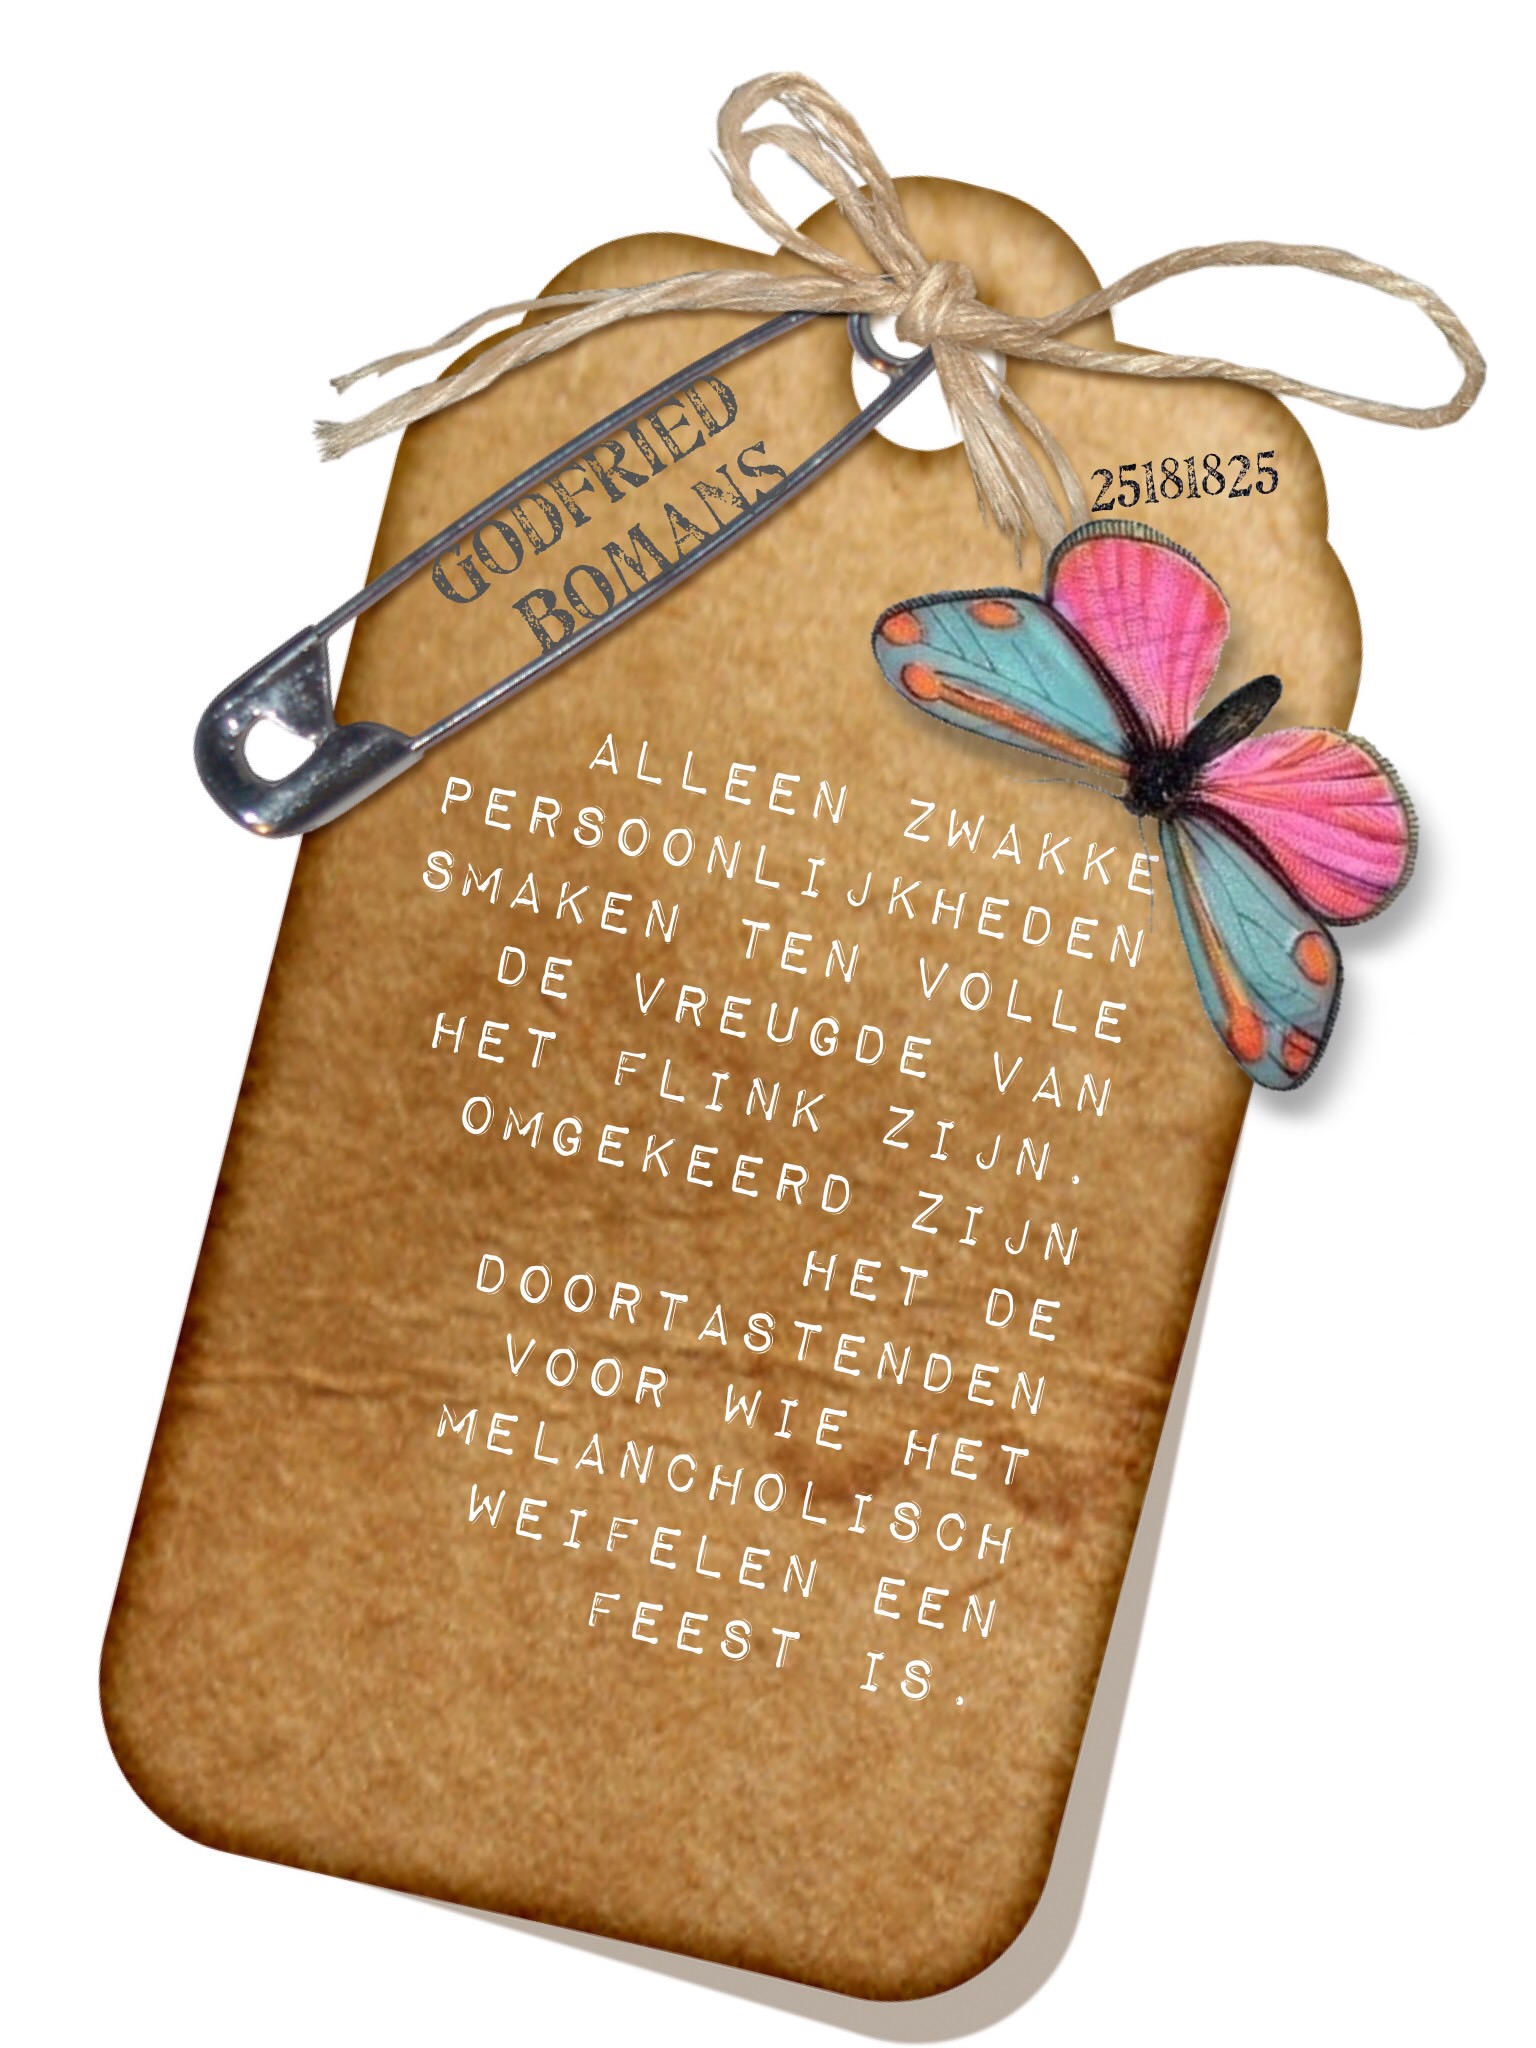 GODFRIED
BOMANS
25181825
ALLEEN ZWAKKE
PERSOONLIJKHEDEN
SMAKEN TEN VOLLE
DE VREUGDE VAN
HET FLINK ZIJN.
OMGEKEERD ZIJN
HET DE
DOORTASTENDEN
VOOR WIE HET
MELANCHOLISCH
WEIFELEN EEN
FEEST IS.